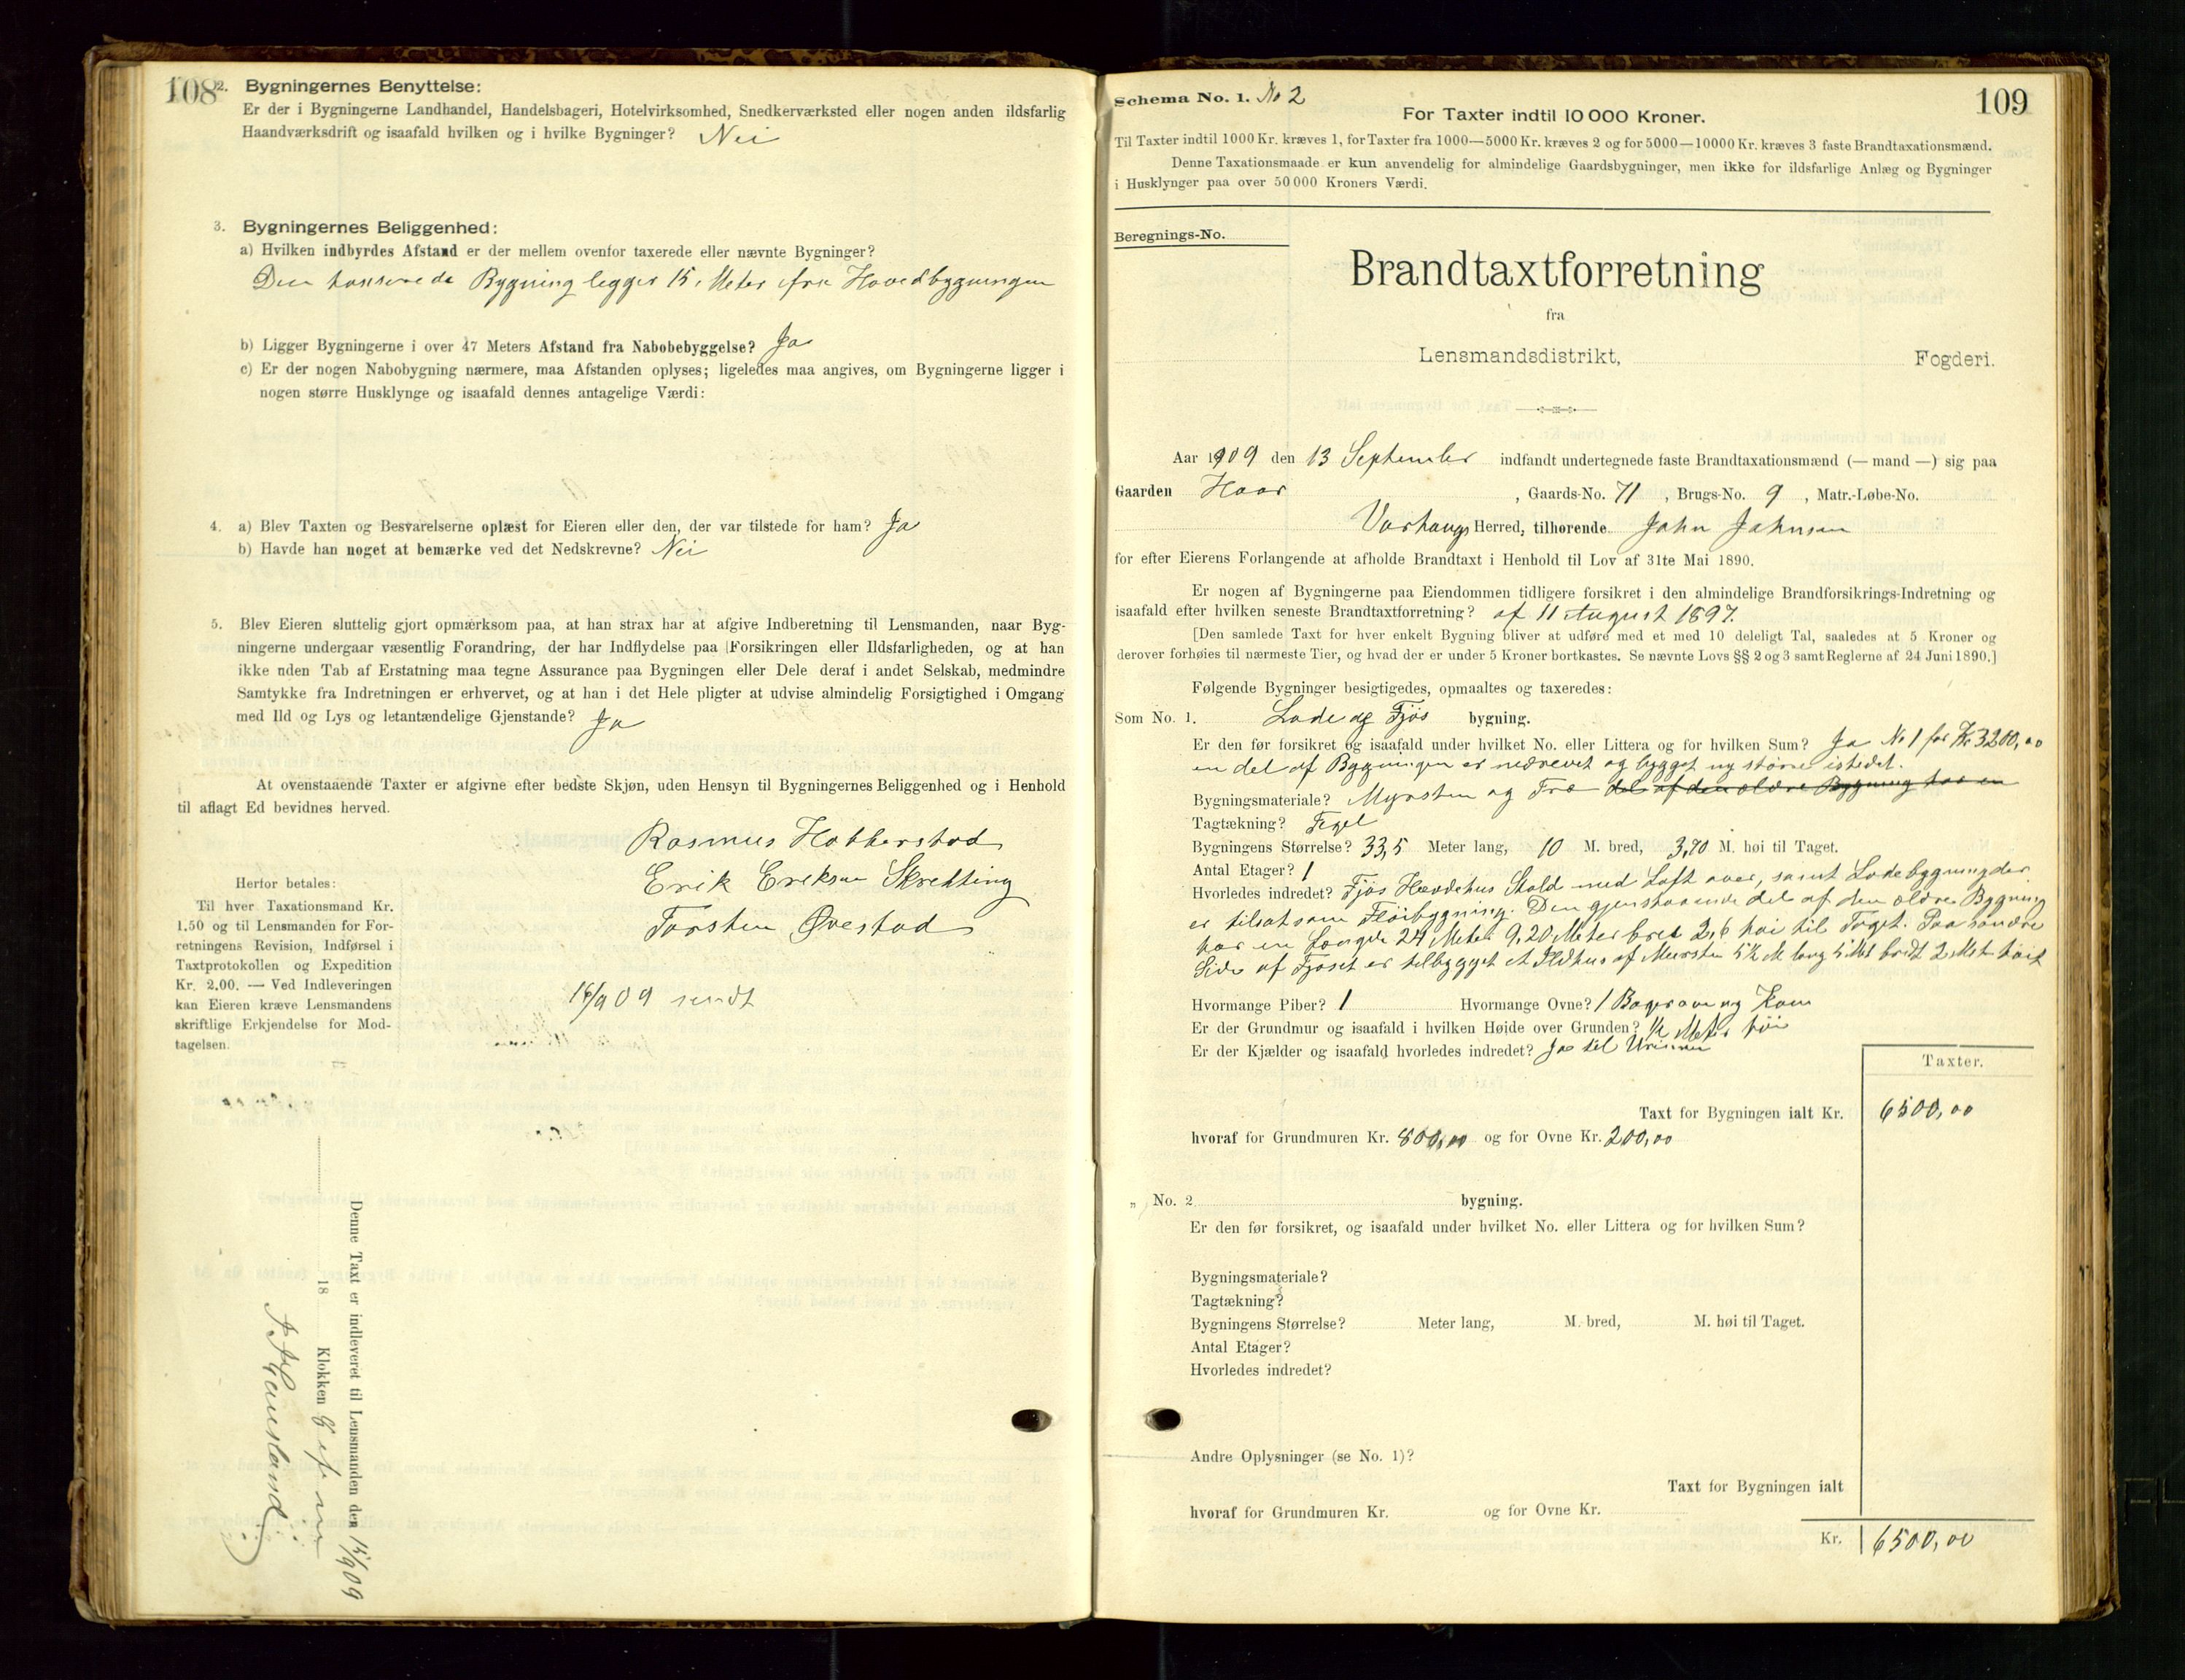 108
2. Bygningernes Benyttelse:
Er der i Bygningerne Landhandel, Handelsbageri, Hotelvirksomhed, Snedkerværksted eller nogen anden ildsfarlig
Haandværksdrift og isaafald hvilken og i hvilke Bygninger? Nei
3. Bygningernes Beliggenhed:
a) Hvilken indbyrdes Afstand er der mellem ovenfor taxerede eller nævnte Bygninger?
Den taxserede Bygning legger 15 Meter fra Hovedbygningen
b) Ligger Bygningerne i over 47 Meters Afstand fra Nabobebyggelse? Ja
c) Er der nogen Nabobygning nærmere, maa Afstanden oplyses; ligeledes maa angives, om Bygningerne ligger i
nogen større Husklynge og isaafald dennes antagelige Værdi:
4. a) Blev Taxten og Besvarelserne oplæst for Eieren eller den, der var tilstede for ham? Ja
b) Havde han noget at bemærke ved det Nedskrevne? Nei
5. Blev Eieren sluttelig gjort opmærksom paa, at han strax har at afgive Indberetning til Lensmanden, naar Byg-
ningerne undergaar væsentlig Forandring, der har Indflydelse paa Forsikringen eller Ildsfarligheden, og at han
ikke uden Tab af Erstatning maa tegne Assurance paa Bygningen eller Dele deraf i andet Selskab, medmindre
Samtykke fra Indretningen er erhvervet, og at han i det Hele pligter at udvise almindelig Forsigtighed i Omgang
med Ild og Lys og letantændelige Gjenstande? Ja
At ovenstaaende Taxter er afgivne efter bedste Skjøn, uden Hensyn til Bygningernes Beliggenhed og i Henhold
til aflagt Ed bevidnes herved.
Rasmus Hobberstad
Erik Eriksen Skretting
Torsten Øvestad
Herfor betales:
Til hver Taxationsmand Kr.
1.50 og til Lensmanden for For-
retningens Revision, Indførsel i
Taxtprotokollen og Expedition
Kr. 2.00. — Ved Indleveringen
kan Eieren kræve Lensmandens
skriftlige Erkjendelse for Mod-
tagelsen.
16/9 09 sendt
Denne Taxt er indleveret til Lensmanden den 15/9 09
18 Klokken 8 ef m
109
Schema No. 1. No 2
For Taxter indtil 10 000 Kroner.
Til Taxter indtil 1000 Kr. kræves 1, for Taxter fra 1000—5000 Kr. kræves 2 og for 5000—10000 Kr. kræves 3 faste Brandtaxationsmænd.
Denne Taxationsmaade er kun anvendelig for almindelige Gaardsbygninger, men ikke for ildsfarlige Anlæg og Bygninger
i Husklynger paa over 50 000 Kroners Værdi.
Beregnings-No.
Brandtaxtforretning
fra
Lensmandsdistrikt, Fogderi.
Aar 1909 den 13 September indfandt undertegnede faste Brandtaxationsmænd (— mand —) sig paa
Gaarden Haar , Gaards-No. 71 , Brugs-No. 9 , Matr.-Løbe-No.
Varhaugs Herred, tilhørende John Johnsen
for efter Eierens Forlangende at afholde Brandtaxt i Henhold til Lov af 31te Mai 1890.
Er nogen af Bygningerne paa Eiendommen tidligere forsikret i den almindelige Brandforsikrings-Indretning og
isaafald efter hvilken seneste Brandtaxtforretning? af 11 August 1897.
[Den samlede Taxt for hver enkelt Bygning bliver at udføre med et med 10 deleligt Tal, saaledes at 5 Kroner og
derover forhøies til nærmeste Tier, og hvad der er under 5 Kroner bortkastes. Se nævnte Lovs §§ 2 og 3 samt Reglerne af 24 Juni 1890.]
Følgende Bygninger besigtigedes, opmaaltes og taxeredes:
Som No. 1. Lade og Fjøs bygning.
Er den før forsikret og isaafald under hvilket No. eller Littera og for hvilken Sum? Ja No 1 for Kr 3200,00
en del af Bygningen er nedrevet og bygget ny større istedet.
Bygningsmateriale? Mursten og Træ del af den ældre Bygning har en
Tagtækning? Tegel
Bygningens Størrelse? 33,5 Meter lang, 10 M. bred, 3,70 M. høi til Taget.
Antal Etager? 1
Hvorledes indredet? Fjøs Høvdehus Stald med Loft over, samt Ladebygning der
er tilsat som Fløibygning. Den gjenstaaende del af den ældre Bygning
har en Længde 24 Meter 9,20 Meter bret 2,6 høi til Taget. Paa søndre
Side af Fjøset er tilbygget et Ildhus af Mursten 5½ M lang 5 Met bredt 2 Meter høit
Hvormange Piber? 1 Hvormange Ovne? 1 Bagerovn og Kom
Er der Grundmur og isaafald i hvilken Høide over Grunden? ½ Meter høi
Er der Kjælder og isaafald hvorledes indredet? Ja til Urinen
Taxter.
Taxt for Bygningen ialt Kr. 6500,00
hvoraf for Grundmuren Kr. 800,00 og for Ovne Kr. 200,00
„ No. 2 bygning.
Er den før forsikret, og isaafald under hvilket No. eller Littera og for hvilken Sum?
Bygningsmateriale?
Tagtækning?
Bygningens Størrelse? Meter lang, M. bred, M. høi til Taget.
Antal Etager?
Hvorledes indredet?
Andre Oplysninger (se No. 1)?
Taxt for Bygningen ialt
hvoraf for Grundmuren Kr. og for Ovne Kr.
Kr. 6500,00